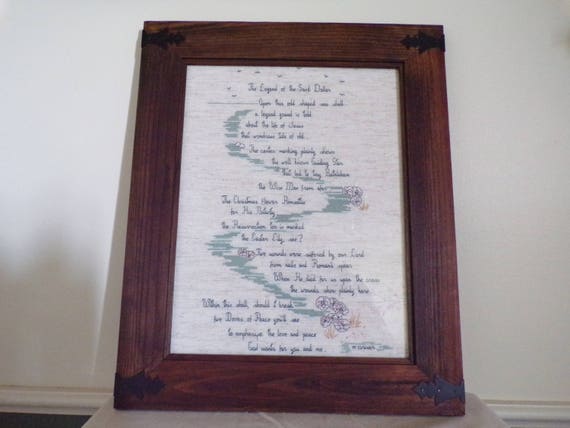 The Legend of the Sand Dollar
Upon this odd shaped sea shell
a legend grand is told
about the life of Jesus
that wondrous tale of old.
The center marking plainly shows
the well known Guiding Star
that led to tiny Bethlehem
the Wise Men from afar.
The Christmas flower Poinsettia
for His Nativity
the Resurrection too is marked
the Easter Lily, see?
Five wounds were suffered by our Lord
from nails and Roman's spear
When He died for us upon the cross
the wounds show plainly here.
Within this shell, should it break
five Doves of Peace you'll see
to emphasize the love and peace
God wants for you and me.